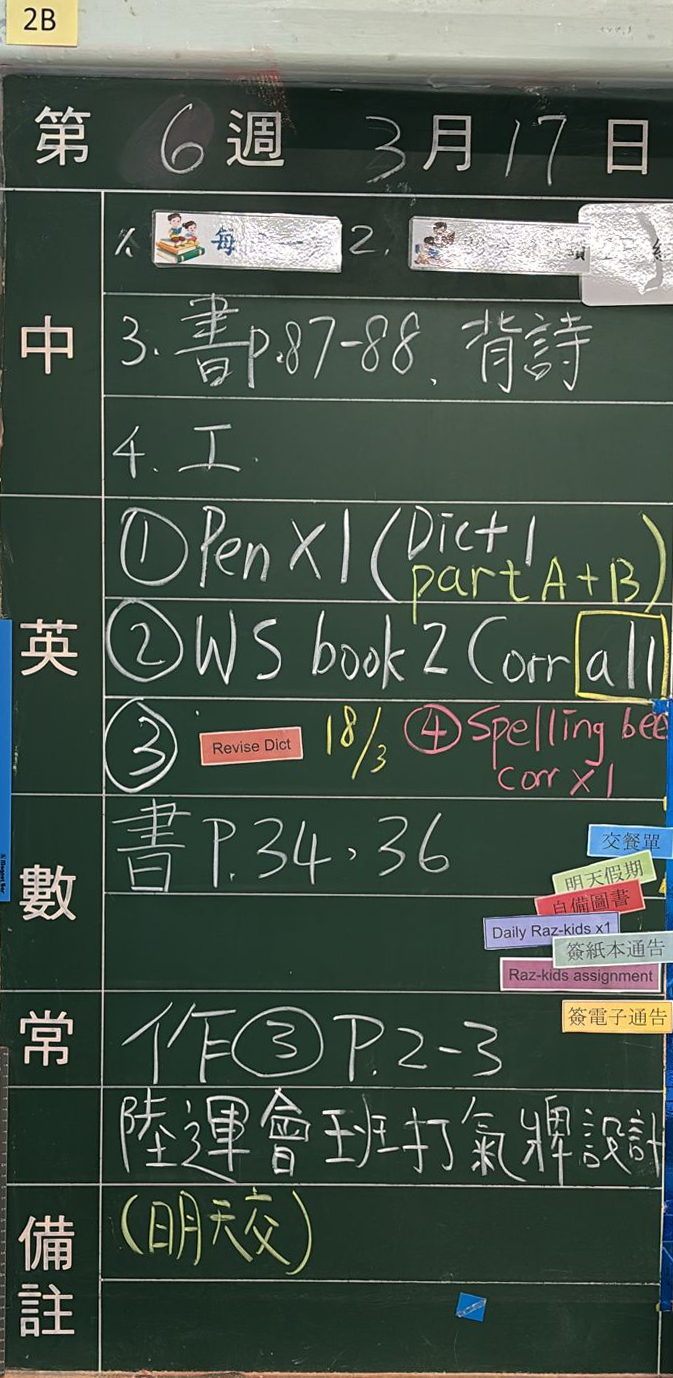 2B
第 6 週 3 月 17 日
中
1. 每 2.
3. 書p.87-88、背詩
4. 工.
英
① Pen X1 (Dict 1
part A+B)
② WS book 2 Corr all
③ Revise Dict 18/3 ④ Spelling bee
corr x1
數
書 P.34,36
交餐單
明天假期
自備圖書
Daily Raz-kids x1
簽紙本通告
Raz-kids assignment
常
作③ P.2-3
簽電子通告
陸運會班打氣牌設計
備註
(明天交)